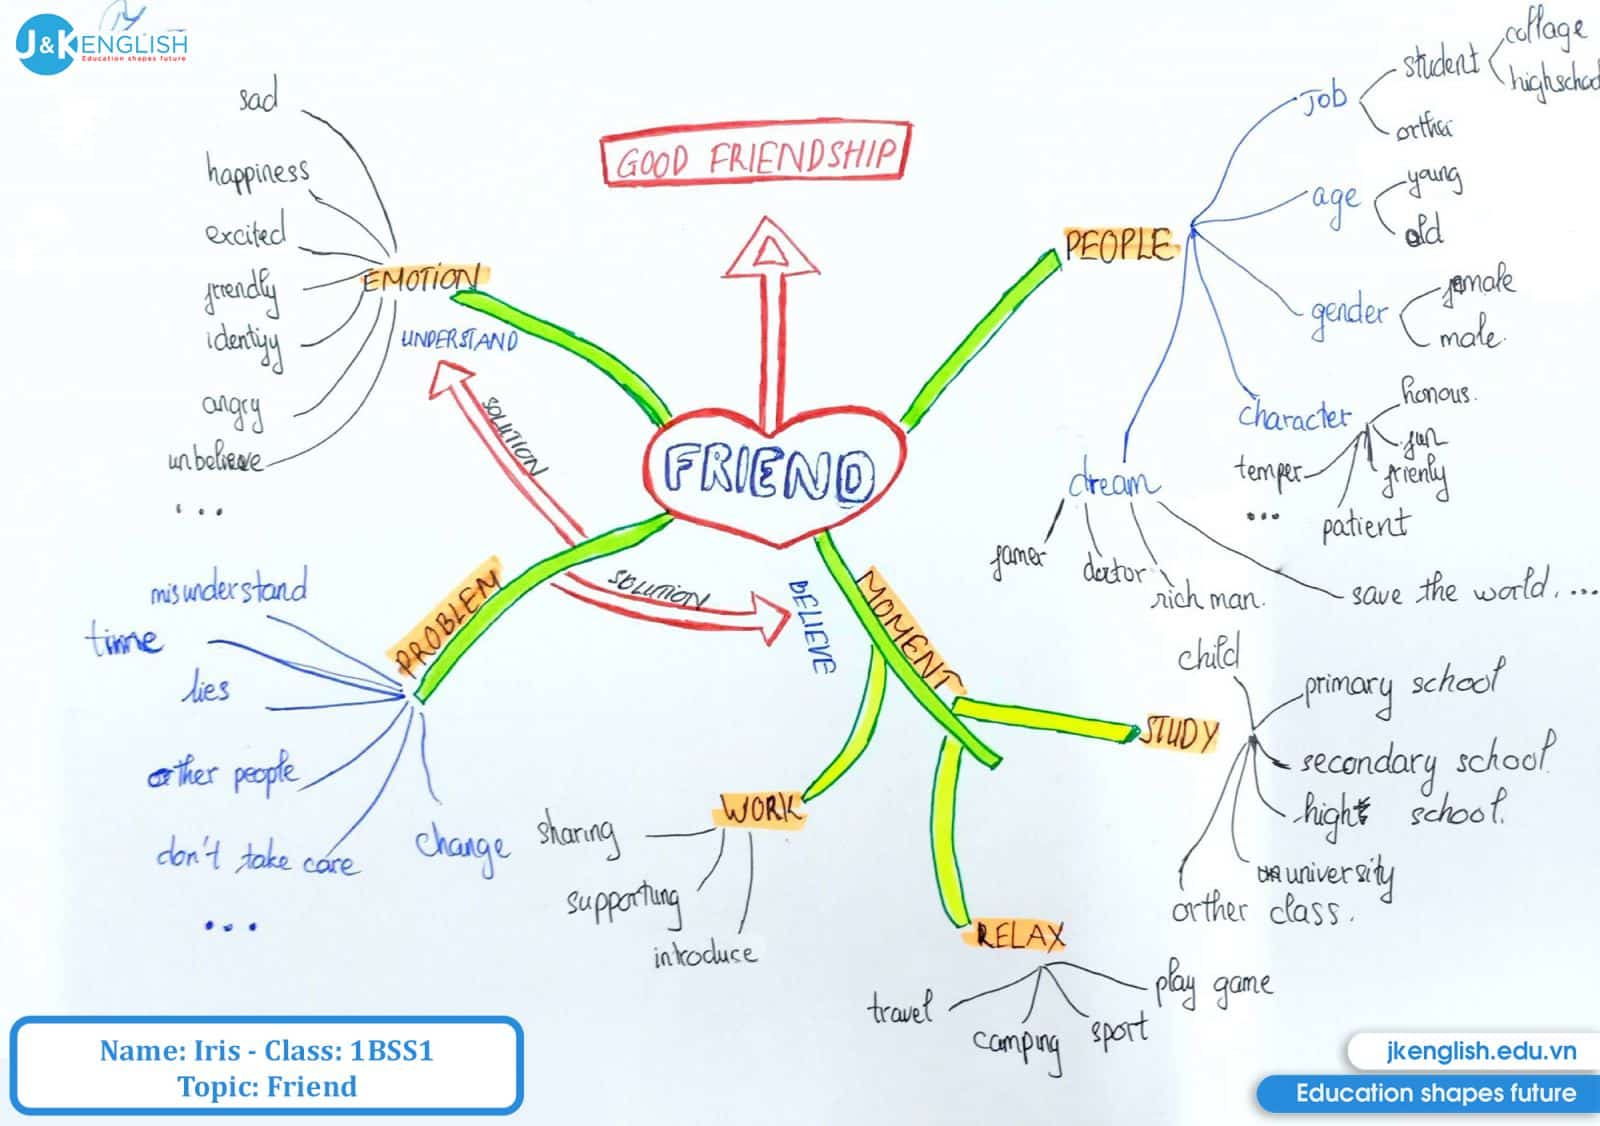 J&K ENGLISH
Education shapes future
GOOD FRIENDSHIP
FRIEND
EMOTION
sad
happiness
excited
friendly
identiyy
angry
unbelieve
...
UNDERSTAND
SOLUTION
SOLUTION
BELIEVE
PEOPLE
Job
student
collage
highschool
orther
age
young
old
gender
female
male.
character
honous.
fun
frienly
patient
temper
...
dream
famer
doctor
rich man.
save the world. ...
PROBLEM
misunderstand
time
lies
other people
don't take care
change
...
MOMENT
WORK
sharing
supporting
introduce
RELAX
travel
camping
sport
play game
STUDY
child
primary school
secondary school.
hight school.
university
orther class.
Name: Iris - Class: 1BSS1
Topic: Friend
jkenglish.edu.vn
Education shapes future